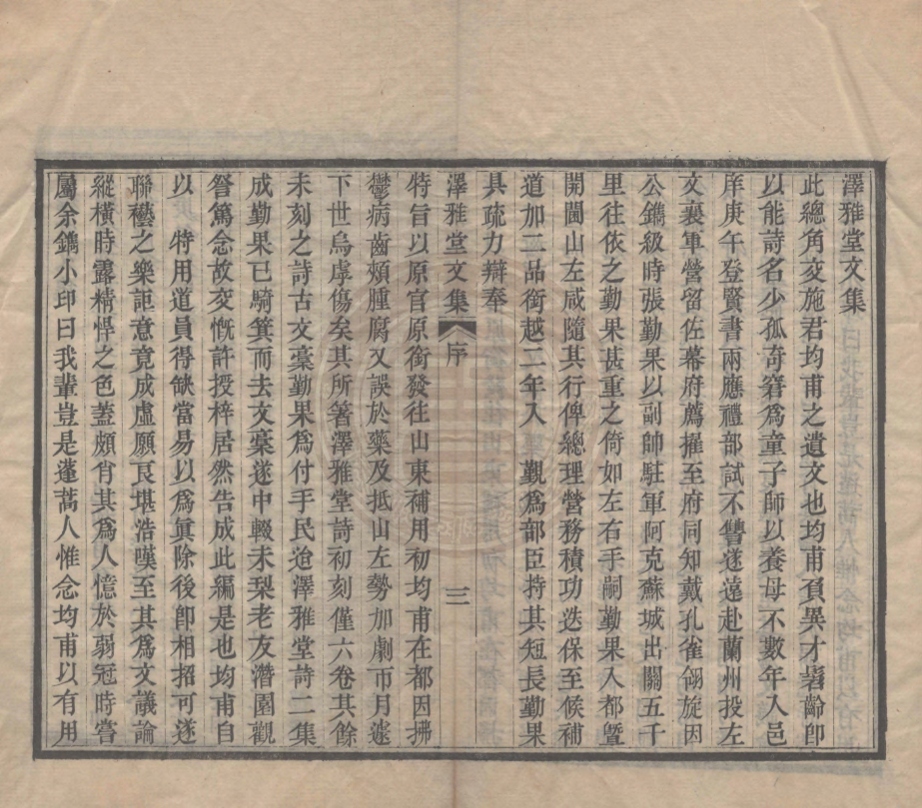 澤雅堂文集
此總角交施君均甫之遺文也均甫負異才髫齡即
以能詩名少孤奇窘為童子師以養母不數年入邑
庠庚午登賢書兩應禮部試不讐遂遠赴蘭州投左
文襄軍營留佐幕府薦擢至府同知戴孔雀翎旋因
公鐫級時張勤果以副帥駐軍阿克蘇城出關五千
里往依之勤果甚重之倚如左右手嗣勤果入都暨
開閫山左咸隨其行俾總理營務積功迭保至候補
道加二品銜越二年入 覲為部臣持其短長勤果
具疏力辯奉
澤雅堂文集 序 三
特旨以原官原銜發往山東補用初均甫在都因拂
鬱病齒頰腫腐又誤於藥及抵山左勢加劇帀月遽
下世烏虖傷矣其所著澤雅堂詩初刻僅六卷其餘
未刻之詩古文稾勤果為付手民迨澤雅堂詩二集
成勤果已騎箕而去文稾遂中輟未梨老友潛園觀
詧篤念故交慨許授梓居然告成此編是也均甫自
以 特用道員得缺當易以為眞除後卽相招可遂
聯藝之樂詎意竟成虛願良堪浩嘆至其為文議論
縱橫時露精悍之色蓋頗肖其為人憶於弱冠時嘗
屬余鐫小印曰我輩豈是蓬蒿人惟念均甫以有用